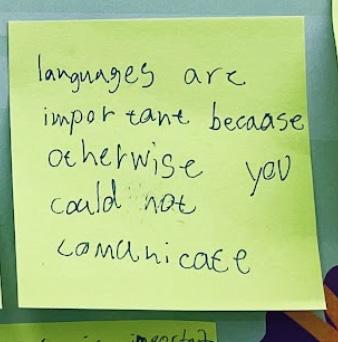 languages are
important becaase
otherwise you
could not
comunicate
important